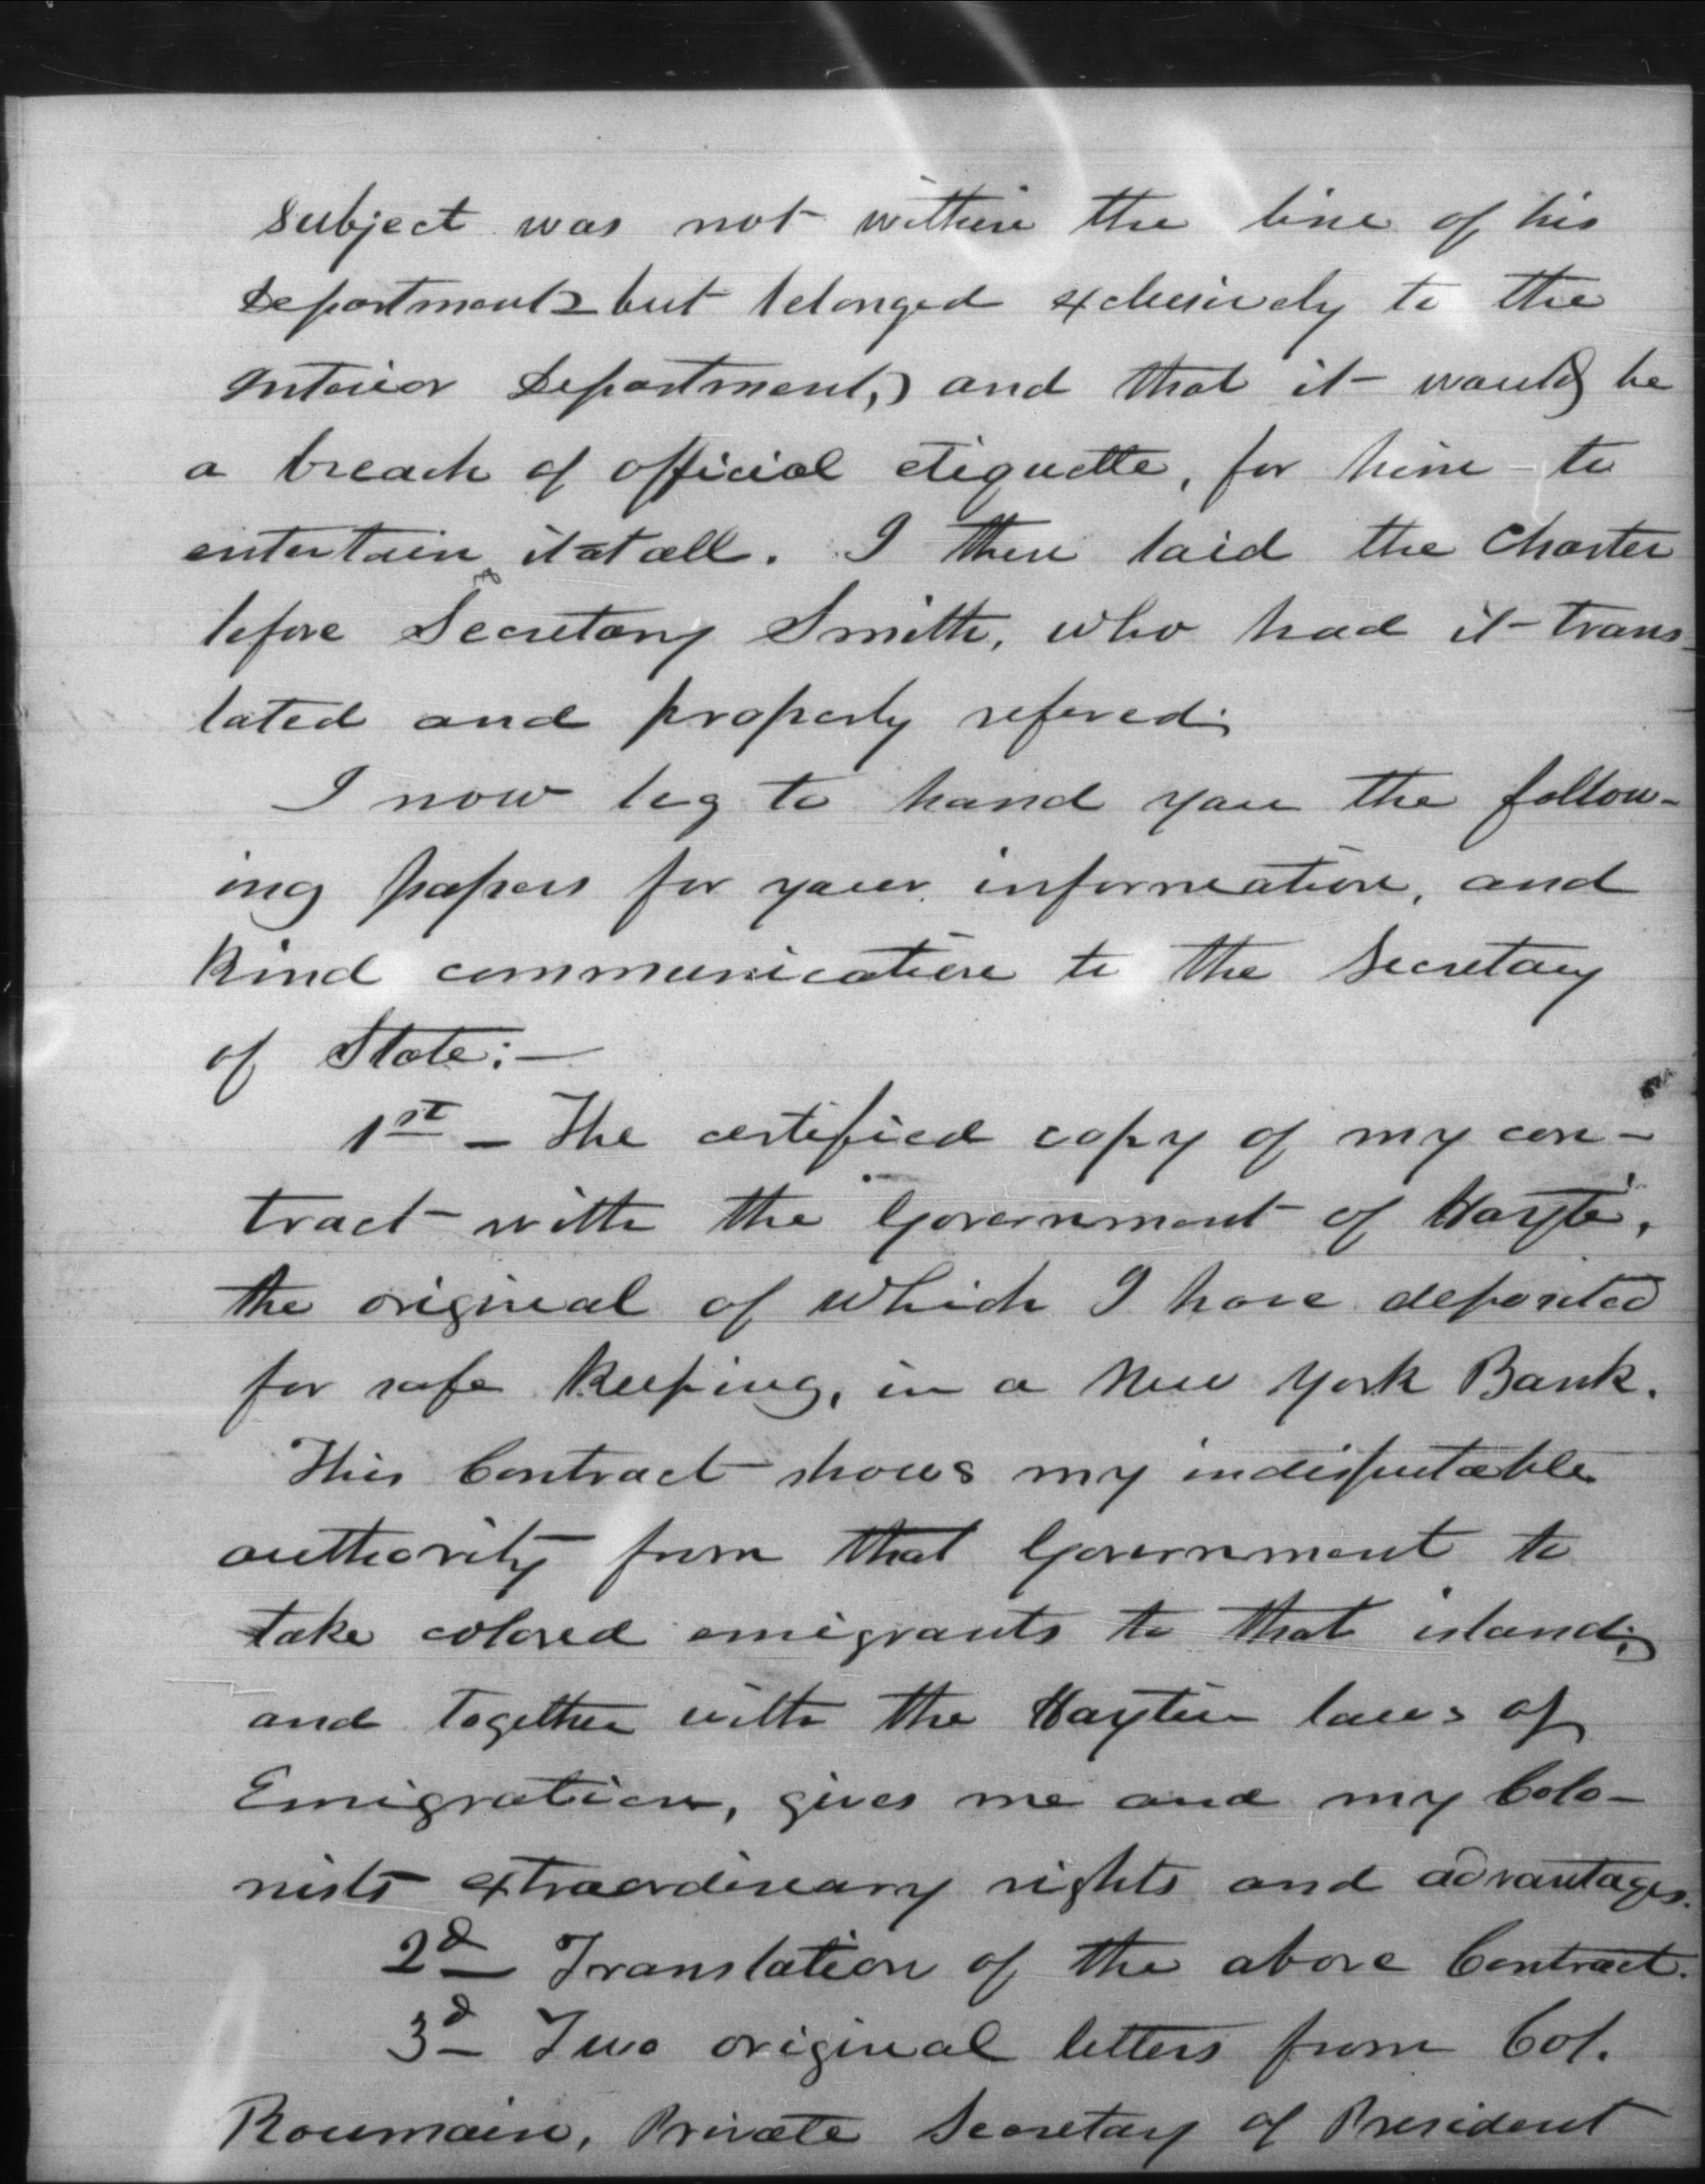 subject was not within the line of his
Department, but belonged exclusively to the
Interior Department, and that it would be
a breach of official etiquette, for him to
entertain it at all. I then laid the Charter
before Secretary Smith, who had it trans-
lated and properly refered.
I now beg to hand you the follow-
ing papers for your information, and
kind communication to the Secretary
of State:—
1st — The certified copy of my con-
tract with the Government of Hayti,
the original of which I have deposited
for safe keeping, in a New York Bank.
This Contract shows my indisputable
authority from that Government to
take colored emigrants to that island;
and together with the Haytien laws of
Emigration, gives me and my Colo-
nists extraordinary rights and advantages.
2d — Translation of the above Contract.
3d — Two original letters from Col.
Roumain, Private Secretary of President